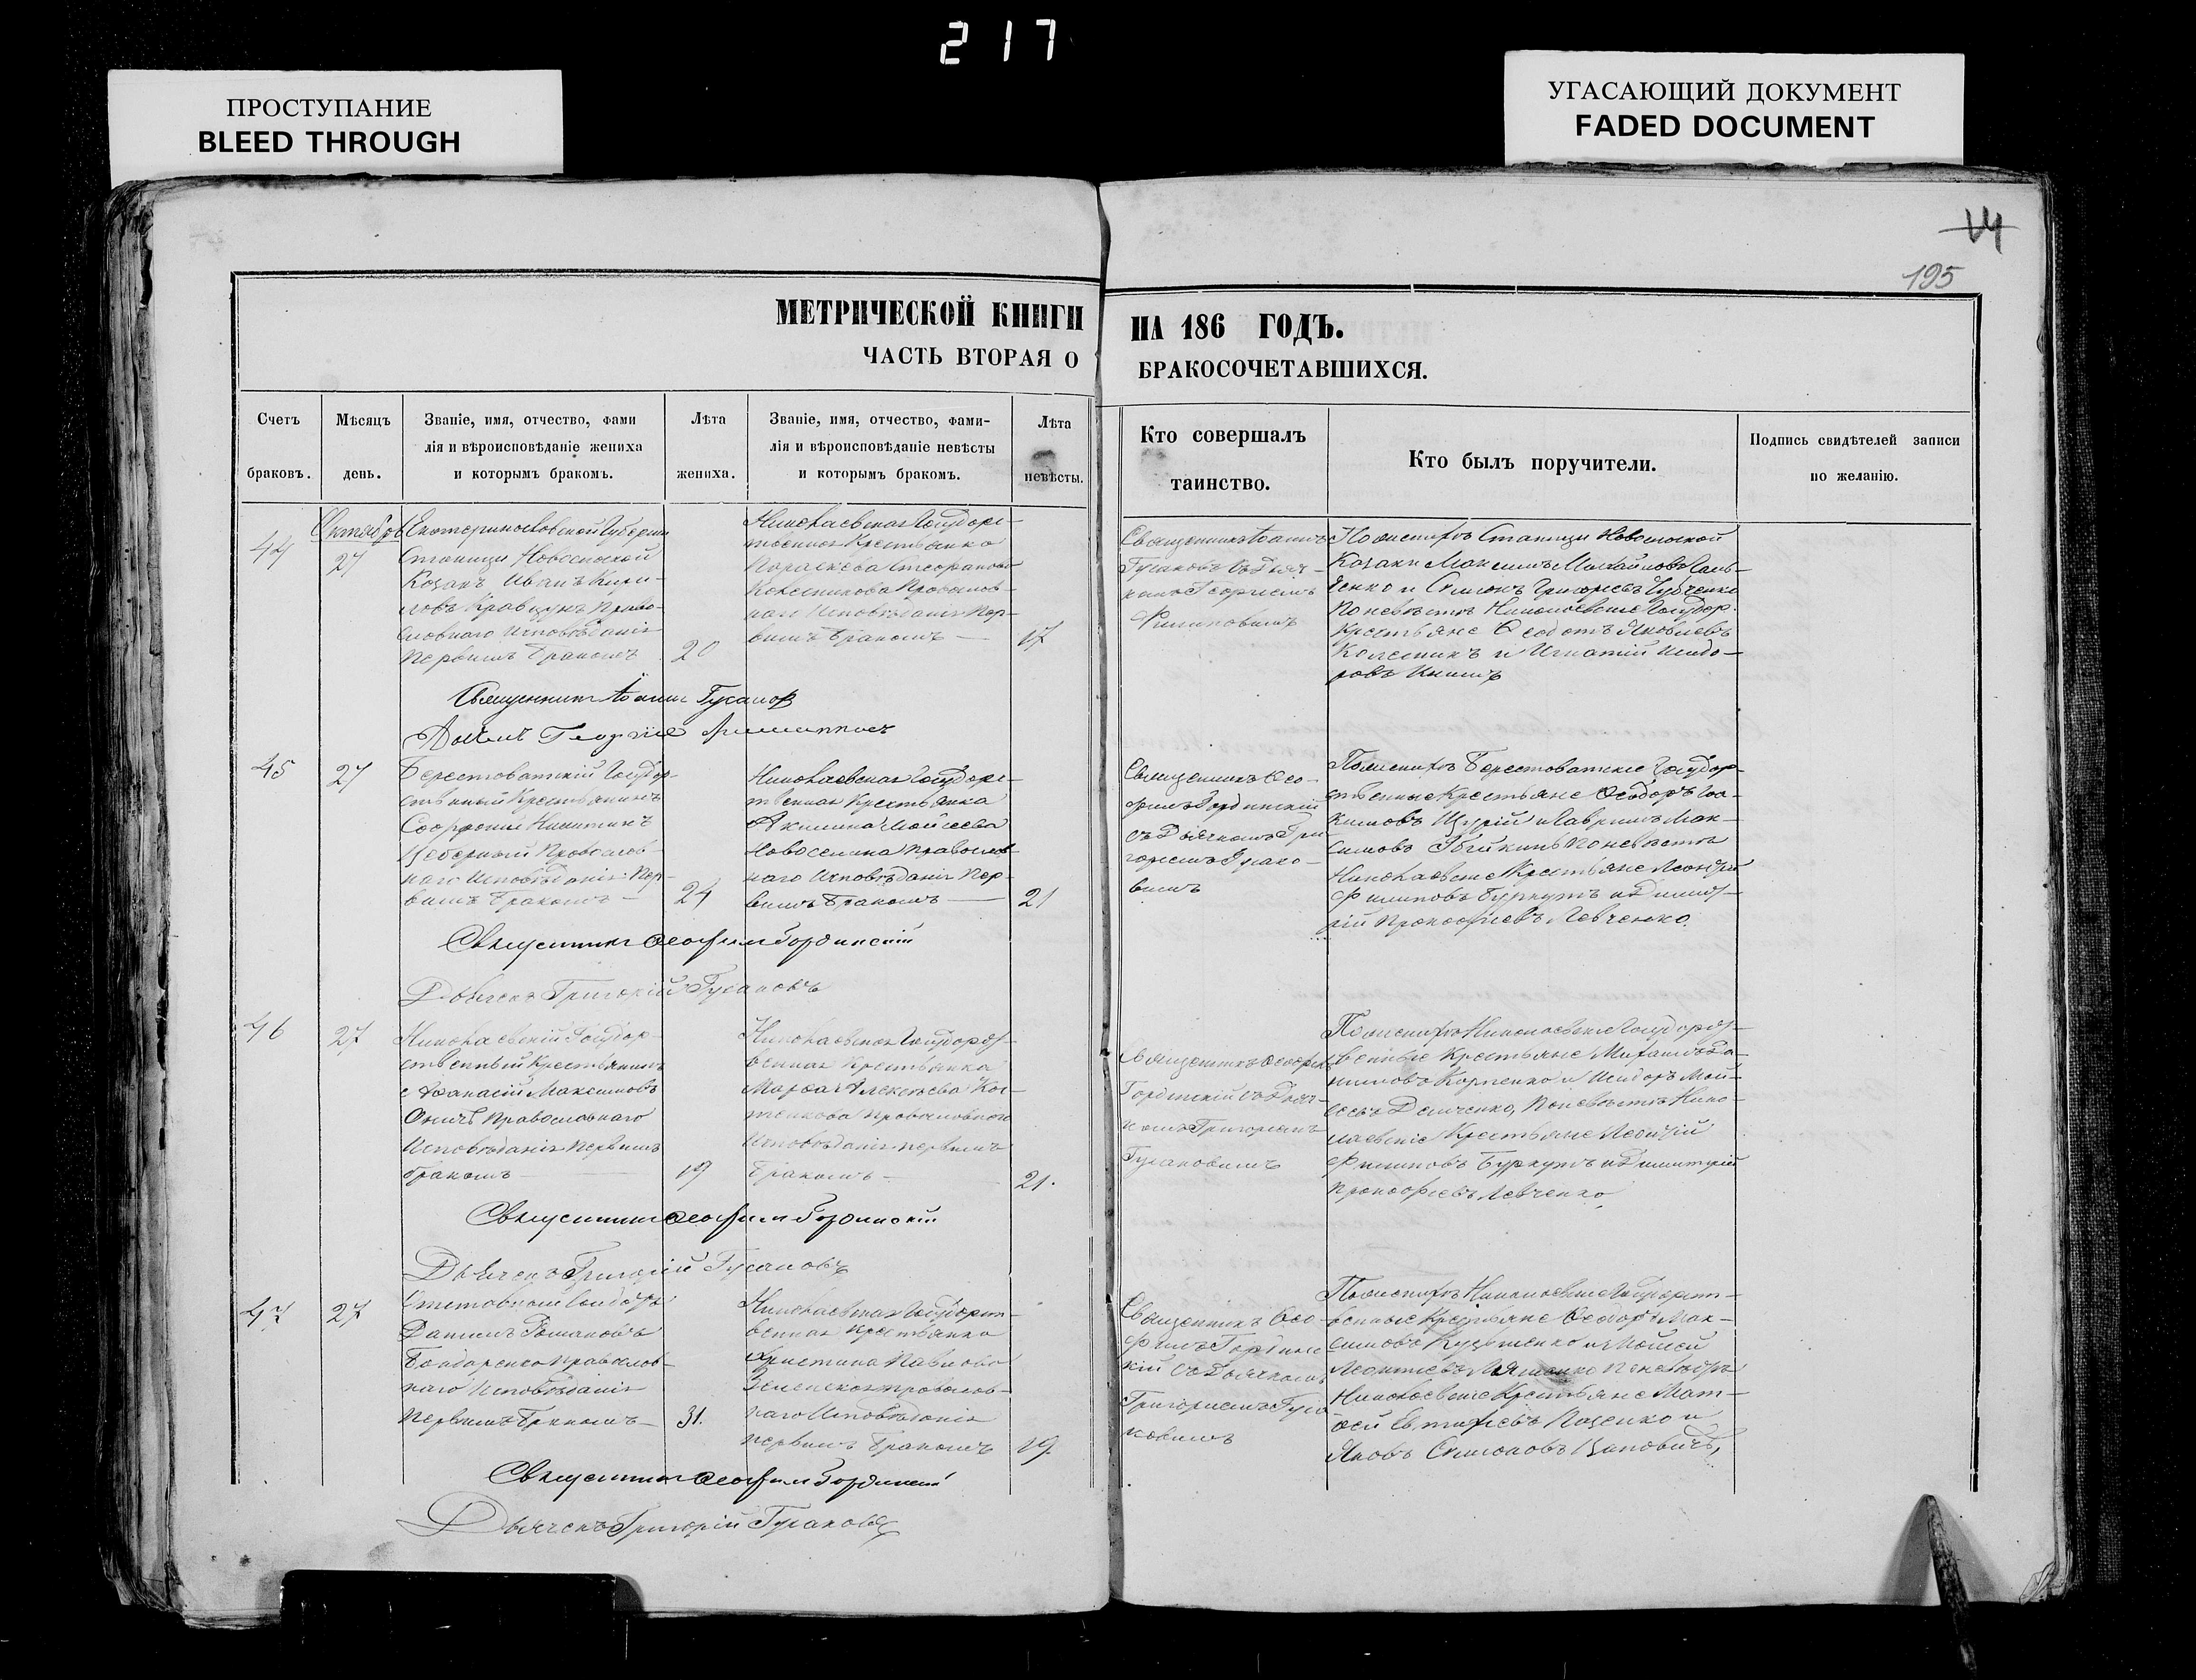 217
ПРОСТУПАНИЕ
BLEED THROUGH
УГАСАЮЩИЙ ДОКУМЕНТ
FADED DOCUMENT
14
195
МЕТРИЧЕСКОЙ КНИГИ НА 186 ГОДЪ.
ЧАСТЬ ВТОРАЯ О БРАКОСОЧЕТАВШИХСЯ.
Счетъ браковъ.
Мѣсяцъ день.
Званіе, имя, отчество, фами
лія и вѣроисповѣданіе жениха
и которымъ бракомъ.
Лѣта жениха.
Званіе, имя, отчество, фами-
лія и вѣроисповѣданіе невѣсты
и которымъ бракомъ.
Лѣта невѣсты.
Кто совершалъ
таинство.
Кто былъ поручители.
Подпись свидѣтелей записи
по желанію.
44
Октябрь
27
Екатеринославской Губерніи
Станицы Новоспаской
Козакъ Иванъ Кири-
ловъ Кравцунъ Право-
славнаго Исповѣданія
Первымъ Бракомъ
20
Николаевская Государс-
твенная Крестьянка
Параскева Стефанова
Колесникова Православ-
наго Исповѣданія Пер-
вымъ Бракомъ
17
Священникъ Іоаннъ
Гусаковъ съ Дьяч-
комъ Георгіемъ
Филиповымъ
По женихѣ Станицы Новоспаской
Козаки Максимъ Михайловъ
и Симонъ Григорьевъ Губченко
По невѣстѣ Николаевскіе Государ.
Крестьяне Ѳеодотъ Яковлевъ
Колесникъ и Игнатій Исидо-
ровъ
Священникъ Іоаннъ Гусаковъ
Дьячекъ Георгіе Филипповъ
45
27
Берестоватскій Государ-
ственный Крестьянинъ
Софроній Никитинъ
Православ-
наго Исповѣданія Пер-
вымъ Бракомъ
24
Николаевская Государс-
твенная Крестьянка
Акилина Мойсеева
Новоселина Православ-
наго Исповѣданія Пер-
вымъ Бракомъ
21
Священникъ Ѳео-
филъ Гординскій
съ Дьячкомъ Гри-
горіемъ Гусако-
вымъ
По женихѣ Берестоватскіе Государ-
ственные Крестьяне Ѳеодоръ Іоа-
кимовъ Щурій и Лавринъ Мак-
симовъ По невѣстѣ
Николаевскіе Крестьяне Леонтій
Филиповъ Буркутъ и Димит-
рій Прокофіевъ Левченко.
Священникъ Ѳеофилъ Гординскій
Дьячекъ Григорій Гусаковъ
46
27
Николаевскій Государ-
ственный Крестьянинъ
Афанасій Максимовъ
Православнаго
Исповѣданія Первымъ
Бракомъ
19
Николаевская Государст-
венная Крестьянка
Марфа Алексѣева Кос-
тенкова Православнаго
Исповѣданія первымъ
Бракомъ
21.
Священникъ Ѳеофилъ
Гординскій съ Дьяч-
комъ Григоріемъ
Гусаковымъ
По женихѣ Николаевскіе Государст-
венные Крестьяне Михаилъ Да-
ниловъ Корненко и Исидоръ Мой-
сеевъ Демченко, По невѣстѣ Нико-
лаевскіе Крестьяне Леонтій
Филиповъ Буркутъ и Димитрій
Прокофіевъ Левченко
Священникъ Ѳеофилъ Гординскій
Дьячекъ Григорій Гусаковъ
47
27
Даніилъ Романовъ
Бондаренко Православ-
наго Исповѣданія
Первымъ Бракомъ
31.
Николаевская Государст-
венная Крестьянка
Христина Павлова
Зеленская Православ-
наго Исповѣданія
первымъ Бракомъ
19
Священникъ Ѳео-
филъ Гординс-
кій съ Дьячкомъ
Григоріемъ Гуса-
ковымъ
По женихѣ Николаевскіе Государст-
венные Крестьяне Ѳеодоръ Мак-
симовъ Кузьменко и Мойсей
Леонтіевъ Ляшенко По невѣстѣ
Николаевскіе Крестьяне Мат-
ѳей Евтиѳіевъ Пащенко и
Яковъ Симоновъ Цаповичъ,
Священникъ Ѳеофилъ Гординскій
Дьячекъ Григорій Гусаковъ